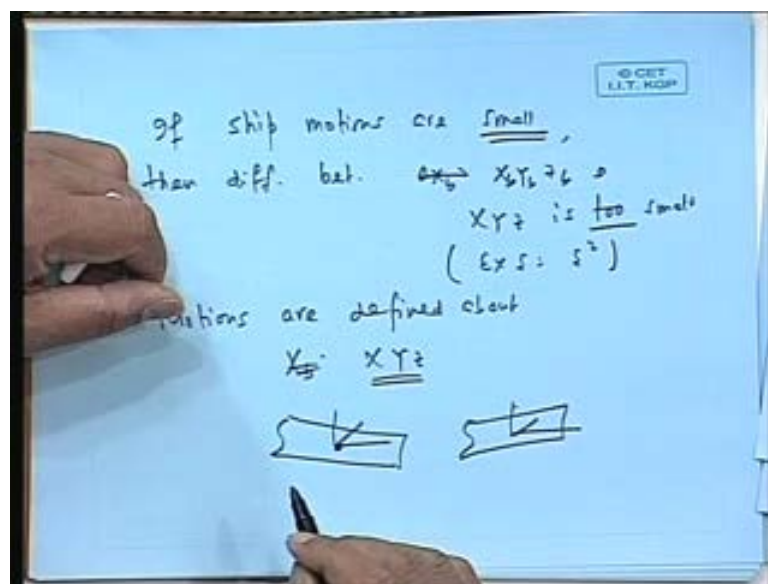 © CET
I.I.T. KGP
If ship motions are small,
then diff. bet. XbYbZb &
XYZ is too small
( ε x ε = ε² )
motions are defined about
XYZ